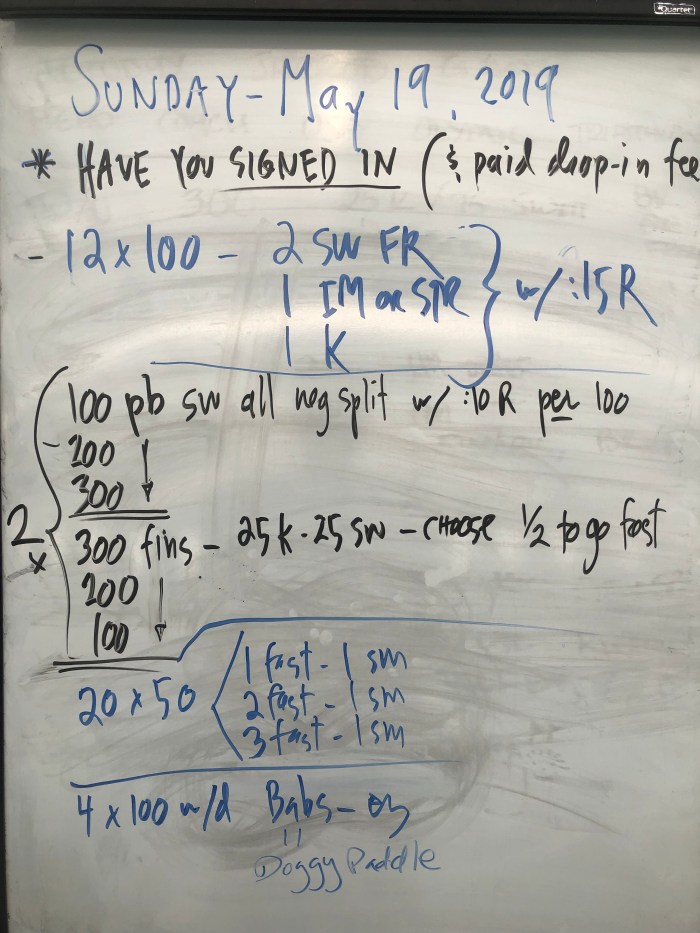 Quartet
SUNDAY - May 19, 2019
* HAVE YOU SIGNED IN (& paid drop-in fee
- 12 x 100 - 2 SW FR
1 IM or STR } w/ :15 R
1 K
100 pb sw all neg split w/ :10 R per 100
- 200 ↓
300
2 x
300 fins - 25 K - 25 SW - CHOOSE 1/2 to go fast
200 ↓
100
20 x 50 < 1 fast - 1 sm
2 fast - 1 sm
3 fast - 1 sm
4 x 100 w/d Babs -
"
Doggy Paddle